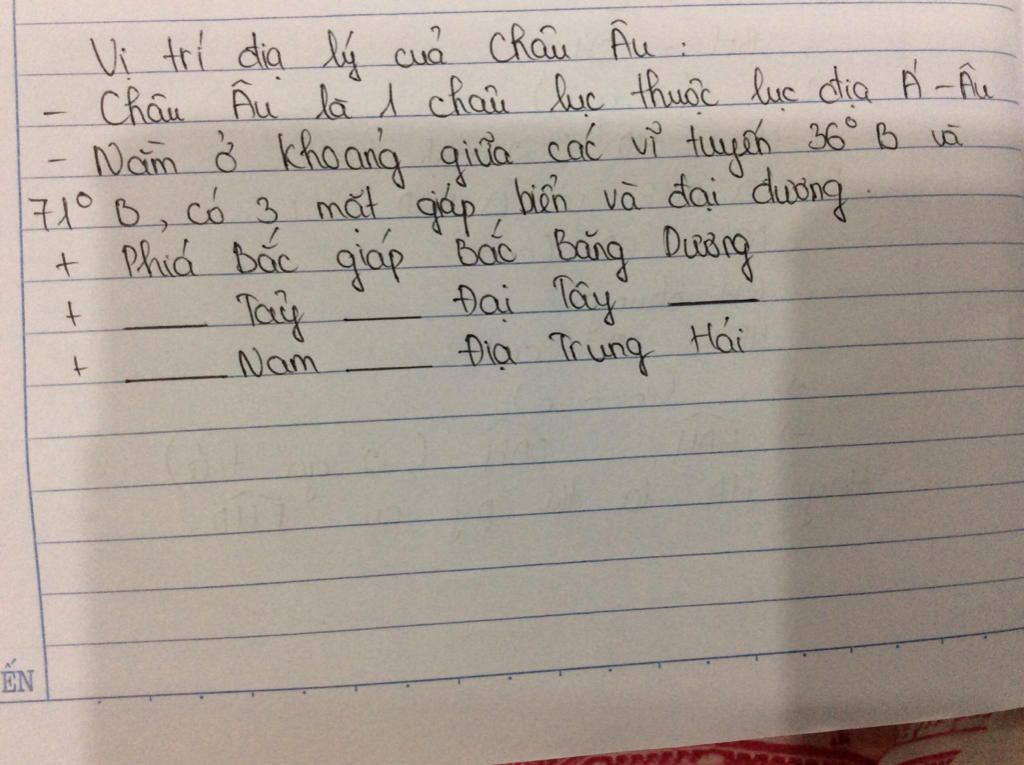 Vị trí địa lý của Châu Âu :
- Châu Âu là 1 châu lục thuộc lục địa Á - Âu
- Nằm ở khoảng giữa các vĩ tuyến 36° B và
71° B, có 3 mặt giáp biển và đại dương.
+ Phía Bắc giáp Bắc Băng Dương
+ ___ Tây ___ Đại Tây ___
+ ___ Nam ___ Địa Trung Hải
ẾN